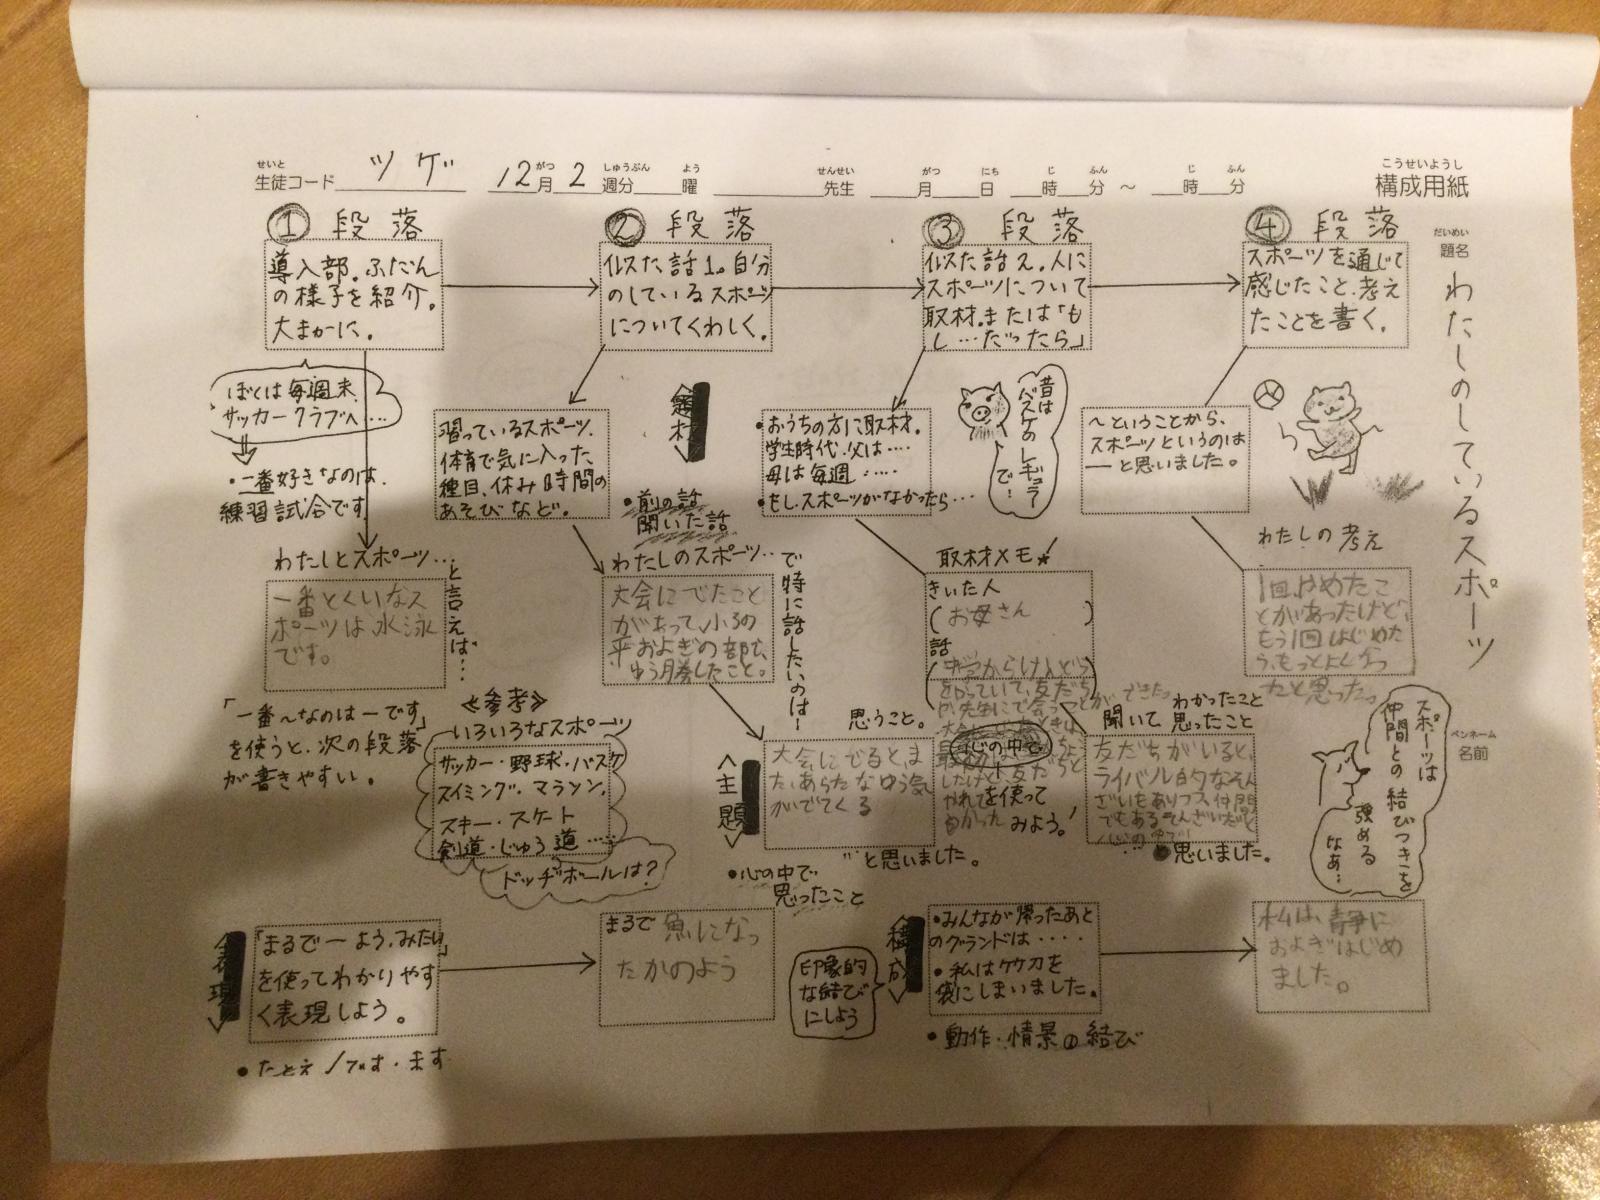 構成用紙
こうせいようし
せいと
生徒コード ツゲ
12月2週分 曜
がつ しゅうぶん よう
せんせい
先生
がつ にち じ ふん じ ふん
月 日 時 分 ～ 時 分
だいめい
題名
わたしのしているスポーツ
ペンネーム
名前
① 段落
導入部。ふだん
の様子を紹介。
大まかに。
② 段落
似た話1。自分
のしているスポーツ
についてくわしく。
③ 段落
似た話2。人に
スポーツについて
取材。または「も
し…だったら」
④ 段落
スポーツを通じて
感じたこと、考え
たことを書く。
ぼくは毎週末、
サッカークラブへ……
・一番好きなのは、
練習試合です
習っているスポーツ、
体育で気に入った
種目、休み時間の
あそびなど。
題材
・前の話
聞いた話
・おうちの方に取材。
学生時代、父は……
母は毎週……
・もしスポーツがなかったら…
昔は
バスケの
レギュラー
で…
～ということから、
スポーツというのは
―と思いました。
わたしとスポーツ…
と言えば…
一番とくいなス
ポーツは水泳
です。
わたしのスポーツ…
で特に話したいのは―
大会にでたこと
があって、小3の
平およぎの部で、
ゆう勝したこと。
取材メモ
きいた人
(お母さん)
話
(中学からけんどう
をやっていて、友だち
わたしの考え
1回、やめたこ
とがあったけど、
もう1回はじめた
ら、もっとよくなっ
たと思った。
「一番～なのは―です」
を使うと、次の段落
が書きやすい。
≪参考≫
いろいろなスポーツ
サッカー・野球・バスケ
スイミング・マラソン、
スキー・スケート
剣道・じゅう道……
ドッヂボールは?
〈主題〉
思うこと。
大会にでると、ま
た、あらたなゆう気
がでてくる
…と思いました。
・心の中で
思ったこと
心の中で
を使って
みよう!
聞いて
わかったこと
思ったこと
友だちがいると、
ライバル的なそん
ざいもありつつ、仲間
でもあるそんざいだと
心の中で
思いました。
スポーツは
仲間との結びつきを
強める
なぁ…
表現
「まるで―よう、みたい」
を使ってわかりやす
く表現しよう。
・たとえ/です・ます
まるで 魚になっ
たかのよう
構成
印象的
な結び
にしよう
・みんなが帰ったあと
のグランドは・・・・
・私は竹刀を
袋にしまいました。
・動作・情景の結び
私は、静に
およぎはじめ
ました。